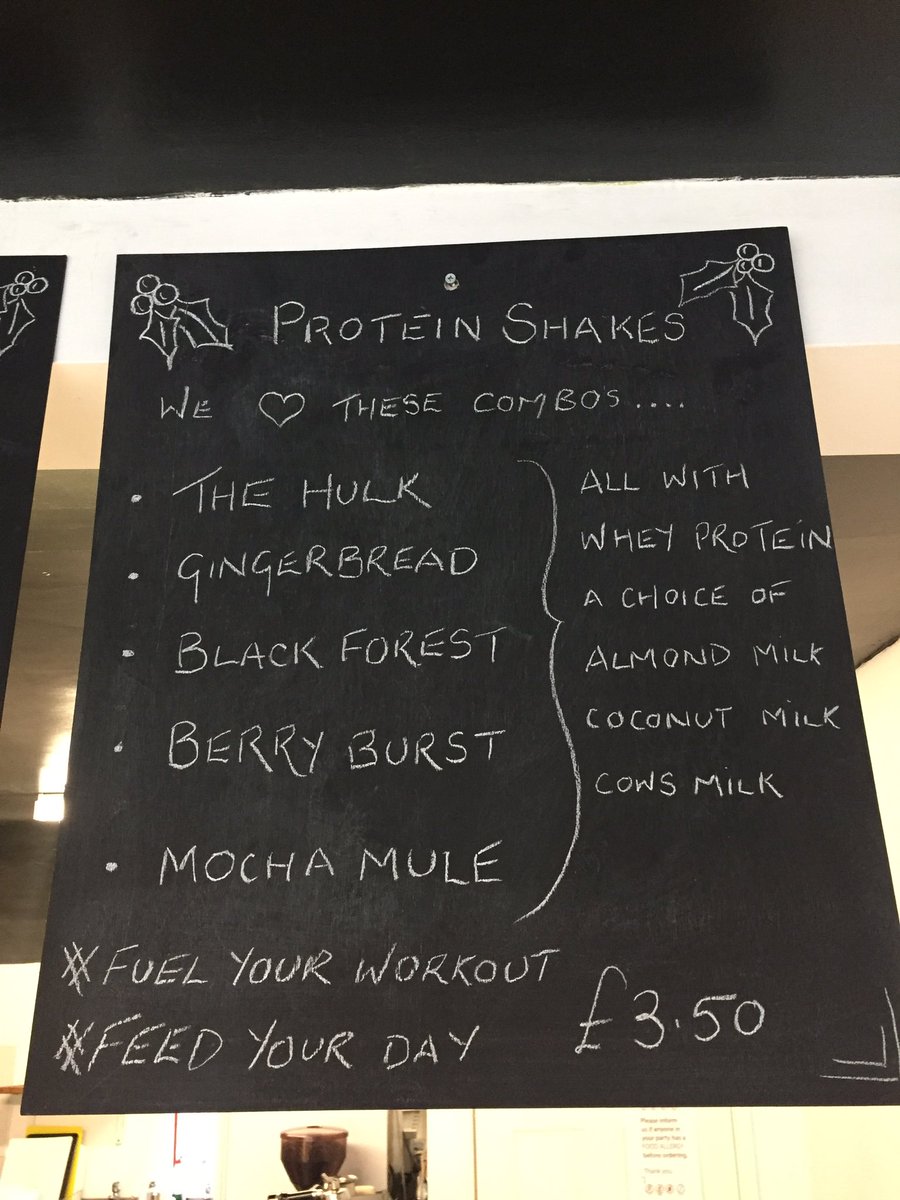 PROTEIN SHAKES
WE ♡ THESE COMBO'S....
• THE HULK
• GINGERBREAD
• BLACK FOREST
• BERRY BURST
• MOCHA MULE
ALL WITH
WHEY PROTEIN
A CHOICE OF
ALMOND MILK
COCONUT MILK
COWS MILK
#FUEL YOUR WORKOUT
#FEED YOUR DAY
£3.50
Please inform
us if anyone in
your party has a
FOOD ALLERGY
before ordering.
Thank you.